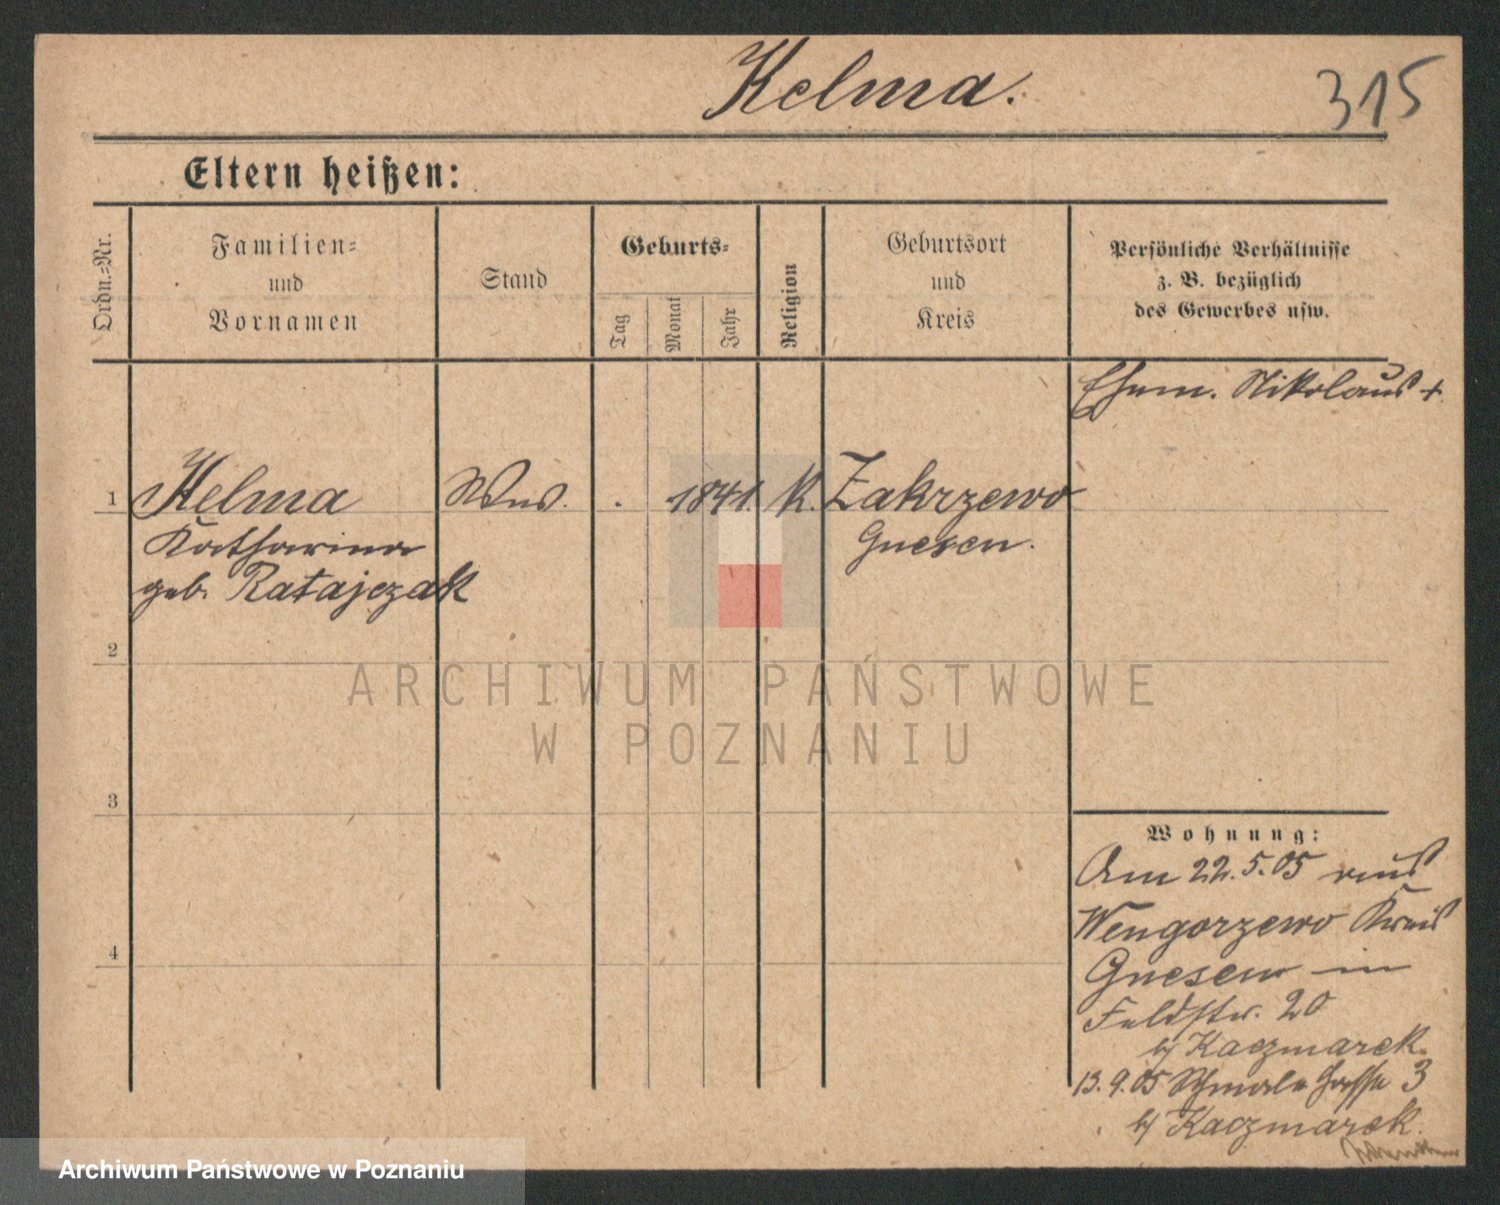 Kelma.
315
Eltern heißen:
Ordn.-Nr.
Familien-
und
Vornamen
Stand
Geburts-
Tag
Monat
Jahr
Religion
Geburtsort
und
Kreis
Persönliche Verhältnisse
z. B. bezüglich
des Gewerbes usw.
Ehem. Nikolaus +
1 Kelma Wwe. . 1841. K. Zakrzewo
Katharina Gnesen.
geb. Ratajczak
2
ARCHIWUM PAŃSTWOWE
W POZNANIU
3
Wohnung:
Am 22.5.05 aus
Wengorzewo Kreis
4
Gnesen — in
Feldstr. 20
bj Kaczmarek.
13.9.05 Schmale Gasse 3
bj Kaczmarek.
Archiwum Państwowe w Poznaniu